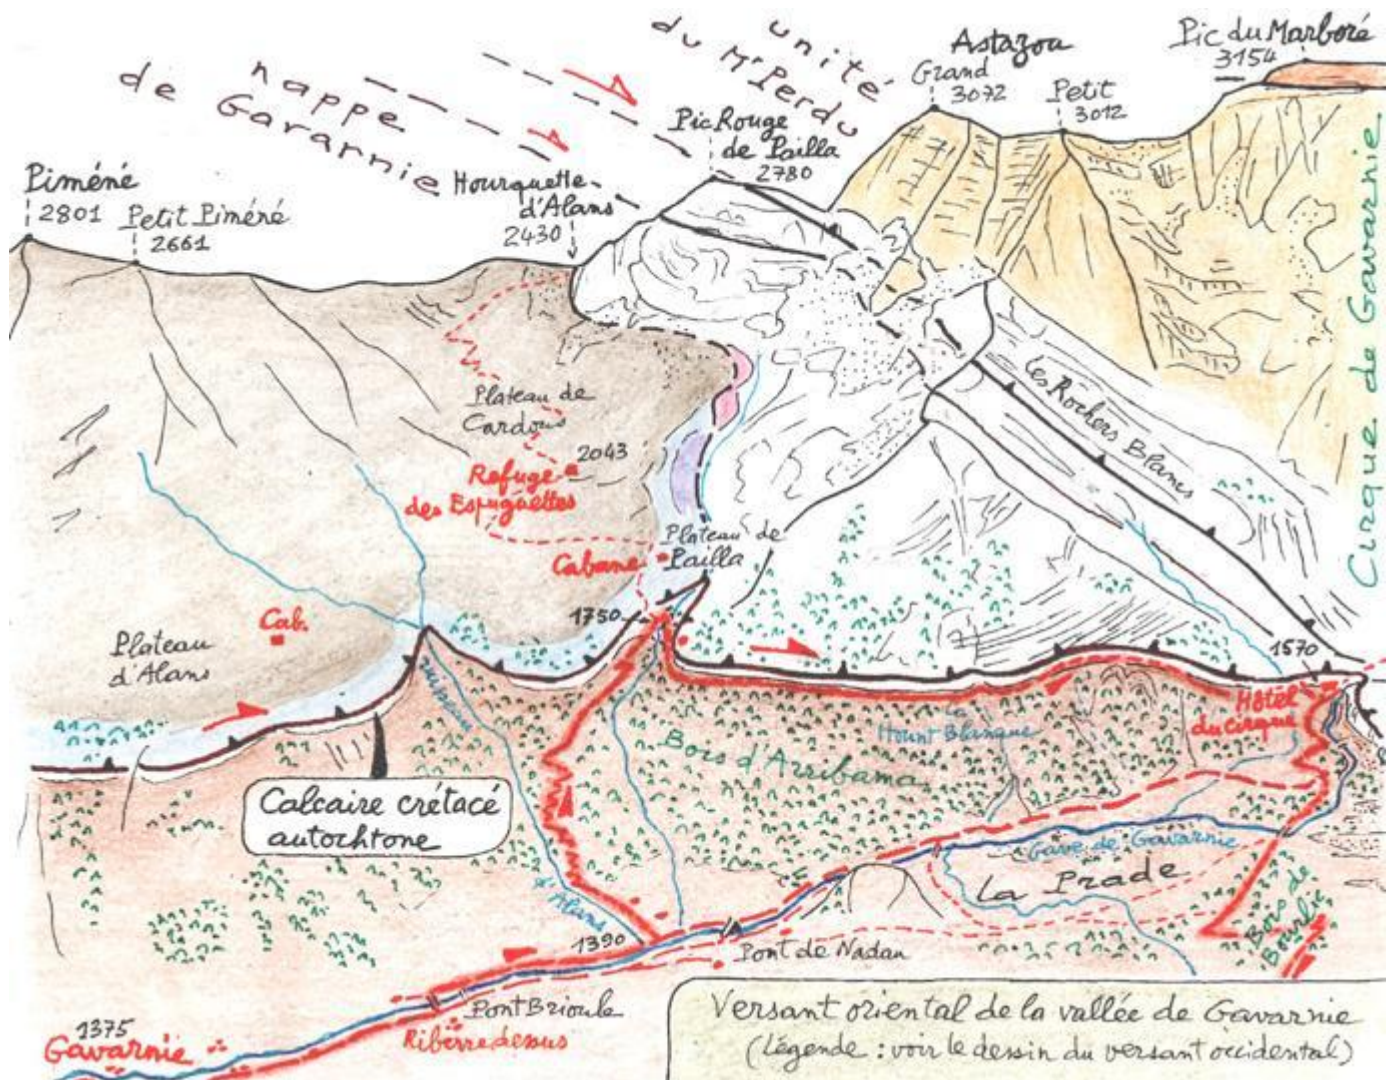 unité
du Mt Perdu
nappe
de Gavarnie
Astazou
Grand
3072
Petit
3012
Pic du Marboré
3154
Pic Rouge
de Pailla
2780
Hourquette
d'Alans
2430
Piméné
2801
Petit Piméné
2661
Cirque de Gavarnie
Les Rochers Blancs
Plateau de
Cardous
2043
Refuge
des Espuguettes
Plateau de
Pailla
Cabane
1750
Cab.
Plateau
d'Alans
1570
Hôtel
du cirque
Hount Blanque
Bois d'Arribama
Calcaire crétacé
autochtone
ruisseau
d'Alans
Gave de Gavarnie
La Prade
Bois de
Bourlic
1390
Pont de Nadau
Pont Brioule
Riberre dessus
1375
Gavarnie
Versant oriental de la vallée de Gavarnie
(Légende : voir le dessin du versant occidental)